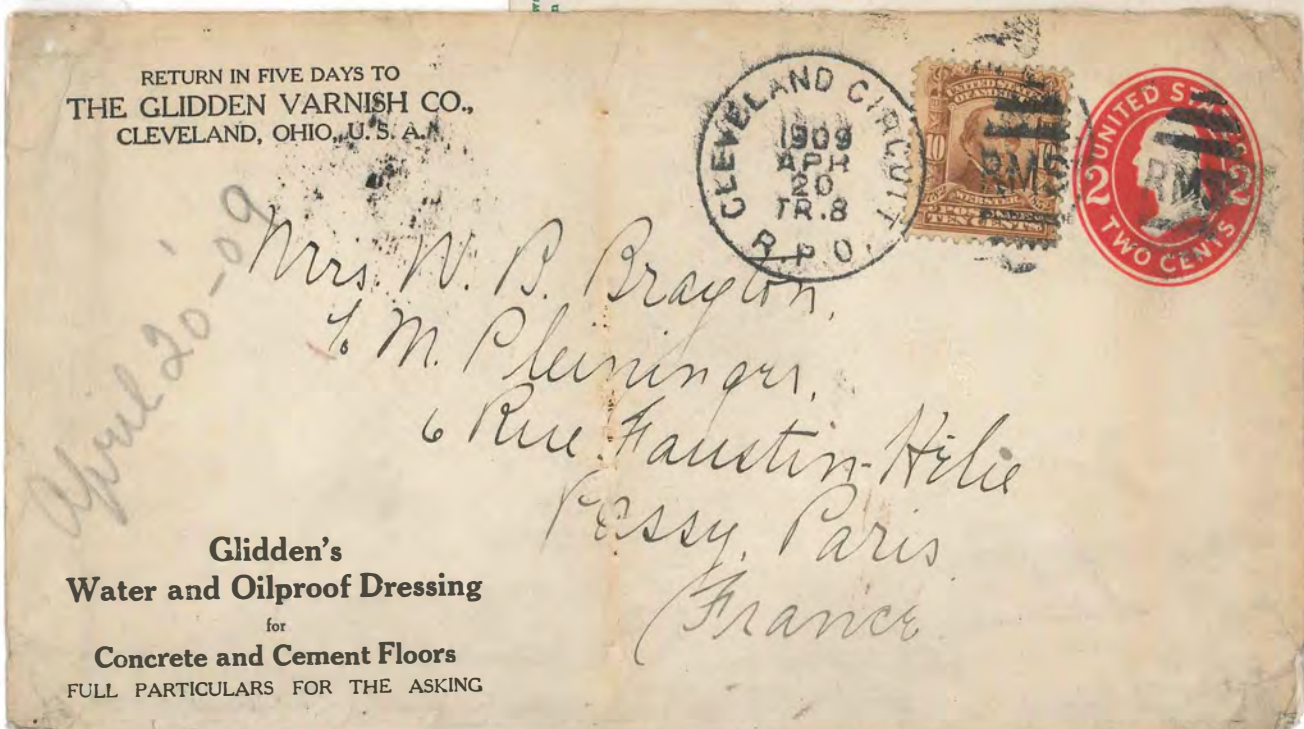 RETURN IN FIVE DAYS TO
THE GLIDDEN VARNISH CO.,
CLEVELAND, OHIO, U. S. A.
CLEVELAND CIRCUIT
1909
APR
20
TR.8
R.P.O.
UNITED STATES
OF AMERICA
10 10
WEBSTER
POSTAGE
TEN CENTS
RMS
UNITED STATES
2 2
TWO CENTS
RMS
April 20-09
Mrs. W. B. Brayton,
% M. Pleininger,
6 Rue Faustin-Hélie
Passy, Paris
France
Glidden's
Water and Oilproof Dressing
for
Concrete and Cement Floors
FULL PARTICULARS FOR THE ASKING